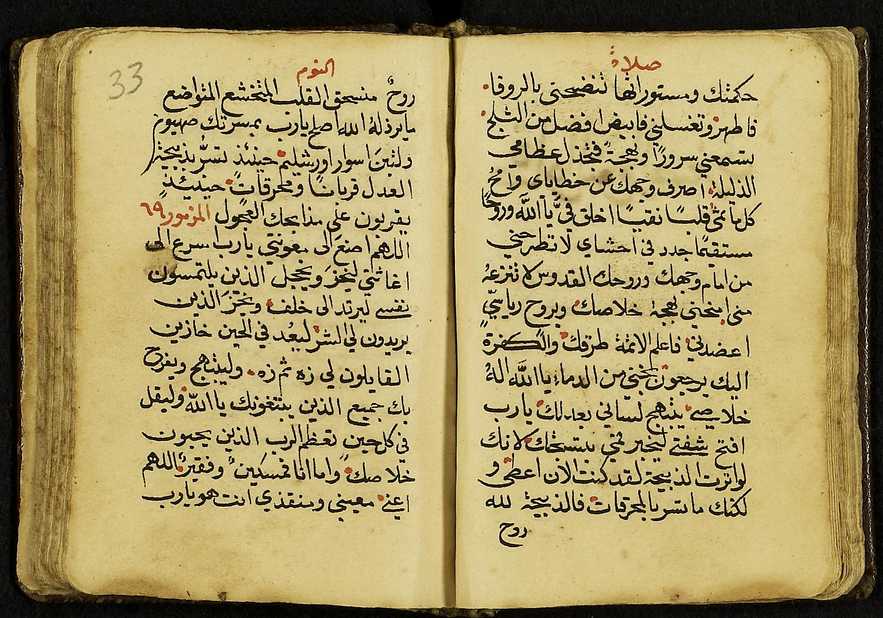 صلاة
حكمتك ومستوراتها تنضحني بالزوفا
فاطهر وتغسلني فابيض افضل من الثلج
تسمعني سرورًا وبهجةً فتجذل عظامي
الذليلة اصرف وجهك عن خطاياي وامحُ
كل مآثمي قلبًا نقيًا اخلق فيَّ يا الله وروحًا
مستقيمًا جدد في احشاي لا تطرحني
من امام وجهك وروحك القدوس لا تنزعهُ
مني امنحني بهجة خلاصك وبروح رياسيٍّ
اعضدني فاعلم الاثمة طرقك والكفرة
اليك يرجعون نجني من الدماء يا الله الهَ
خلاصي يبتهج لساني بعدلك يارب
افتح شفتي ليخبر فمي بتسبحتك لانك
لو اثرت الذبيحة لقد كنت الان اعطي و
لكنك ما تسر بالمحرقات فالذبيحة لله
روح
النوم
33
روحٌ منسحق القلب المتخشع المتواضع
ما يرذلهُ الله اصلح يارب بمسرتك صهيون
ولتبنَ اسوار اورشليم حينئذ تسر بذبيحة
العدل قربانًا ومحرقات حينئذٍ
يقربون على مذابحك العجول المزمور ٦٩
اللهم اصنع الى معونتي يارب اسرع الى
اغاثتي ليخزَ ويخجل الذين يلتمسون
نفسي ليرتد الى خلف ويخزَ الذين
يريدون لي الشر ليعُد في الحين خازين
القايلون لي زه ثم زه وليبتهج ويفرح
بك جميع الذين يبتغونك يا الله وليقل
في كل حين تعظم الرب الذين يحبون
خلاصك واما انا فمسكينٌ وفقيرٌ اللهم
اعني معيني ومنقذي انت هو يارب